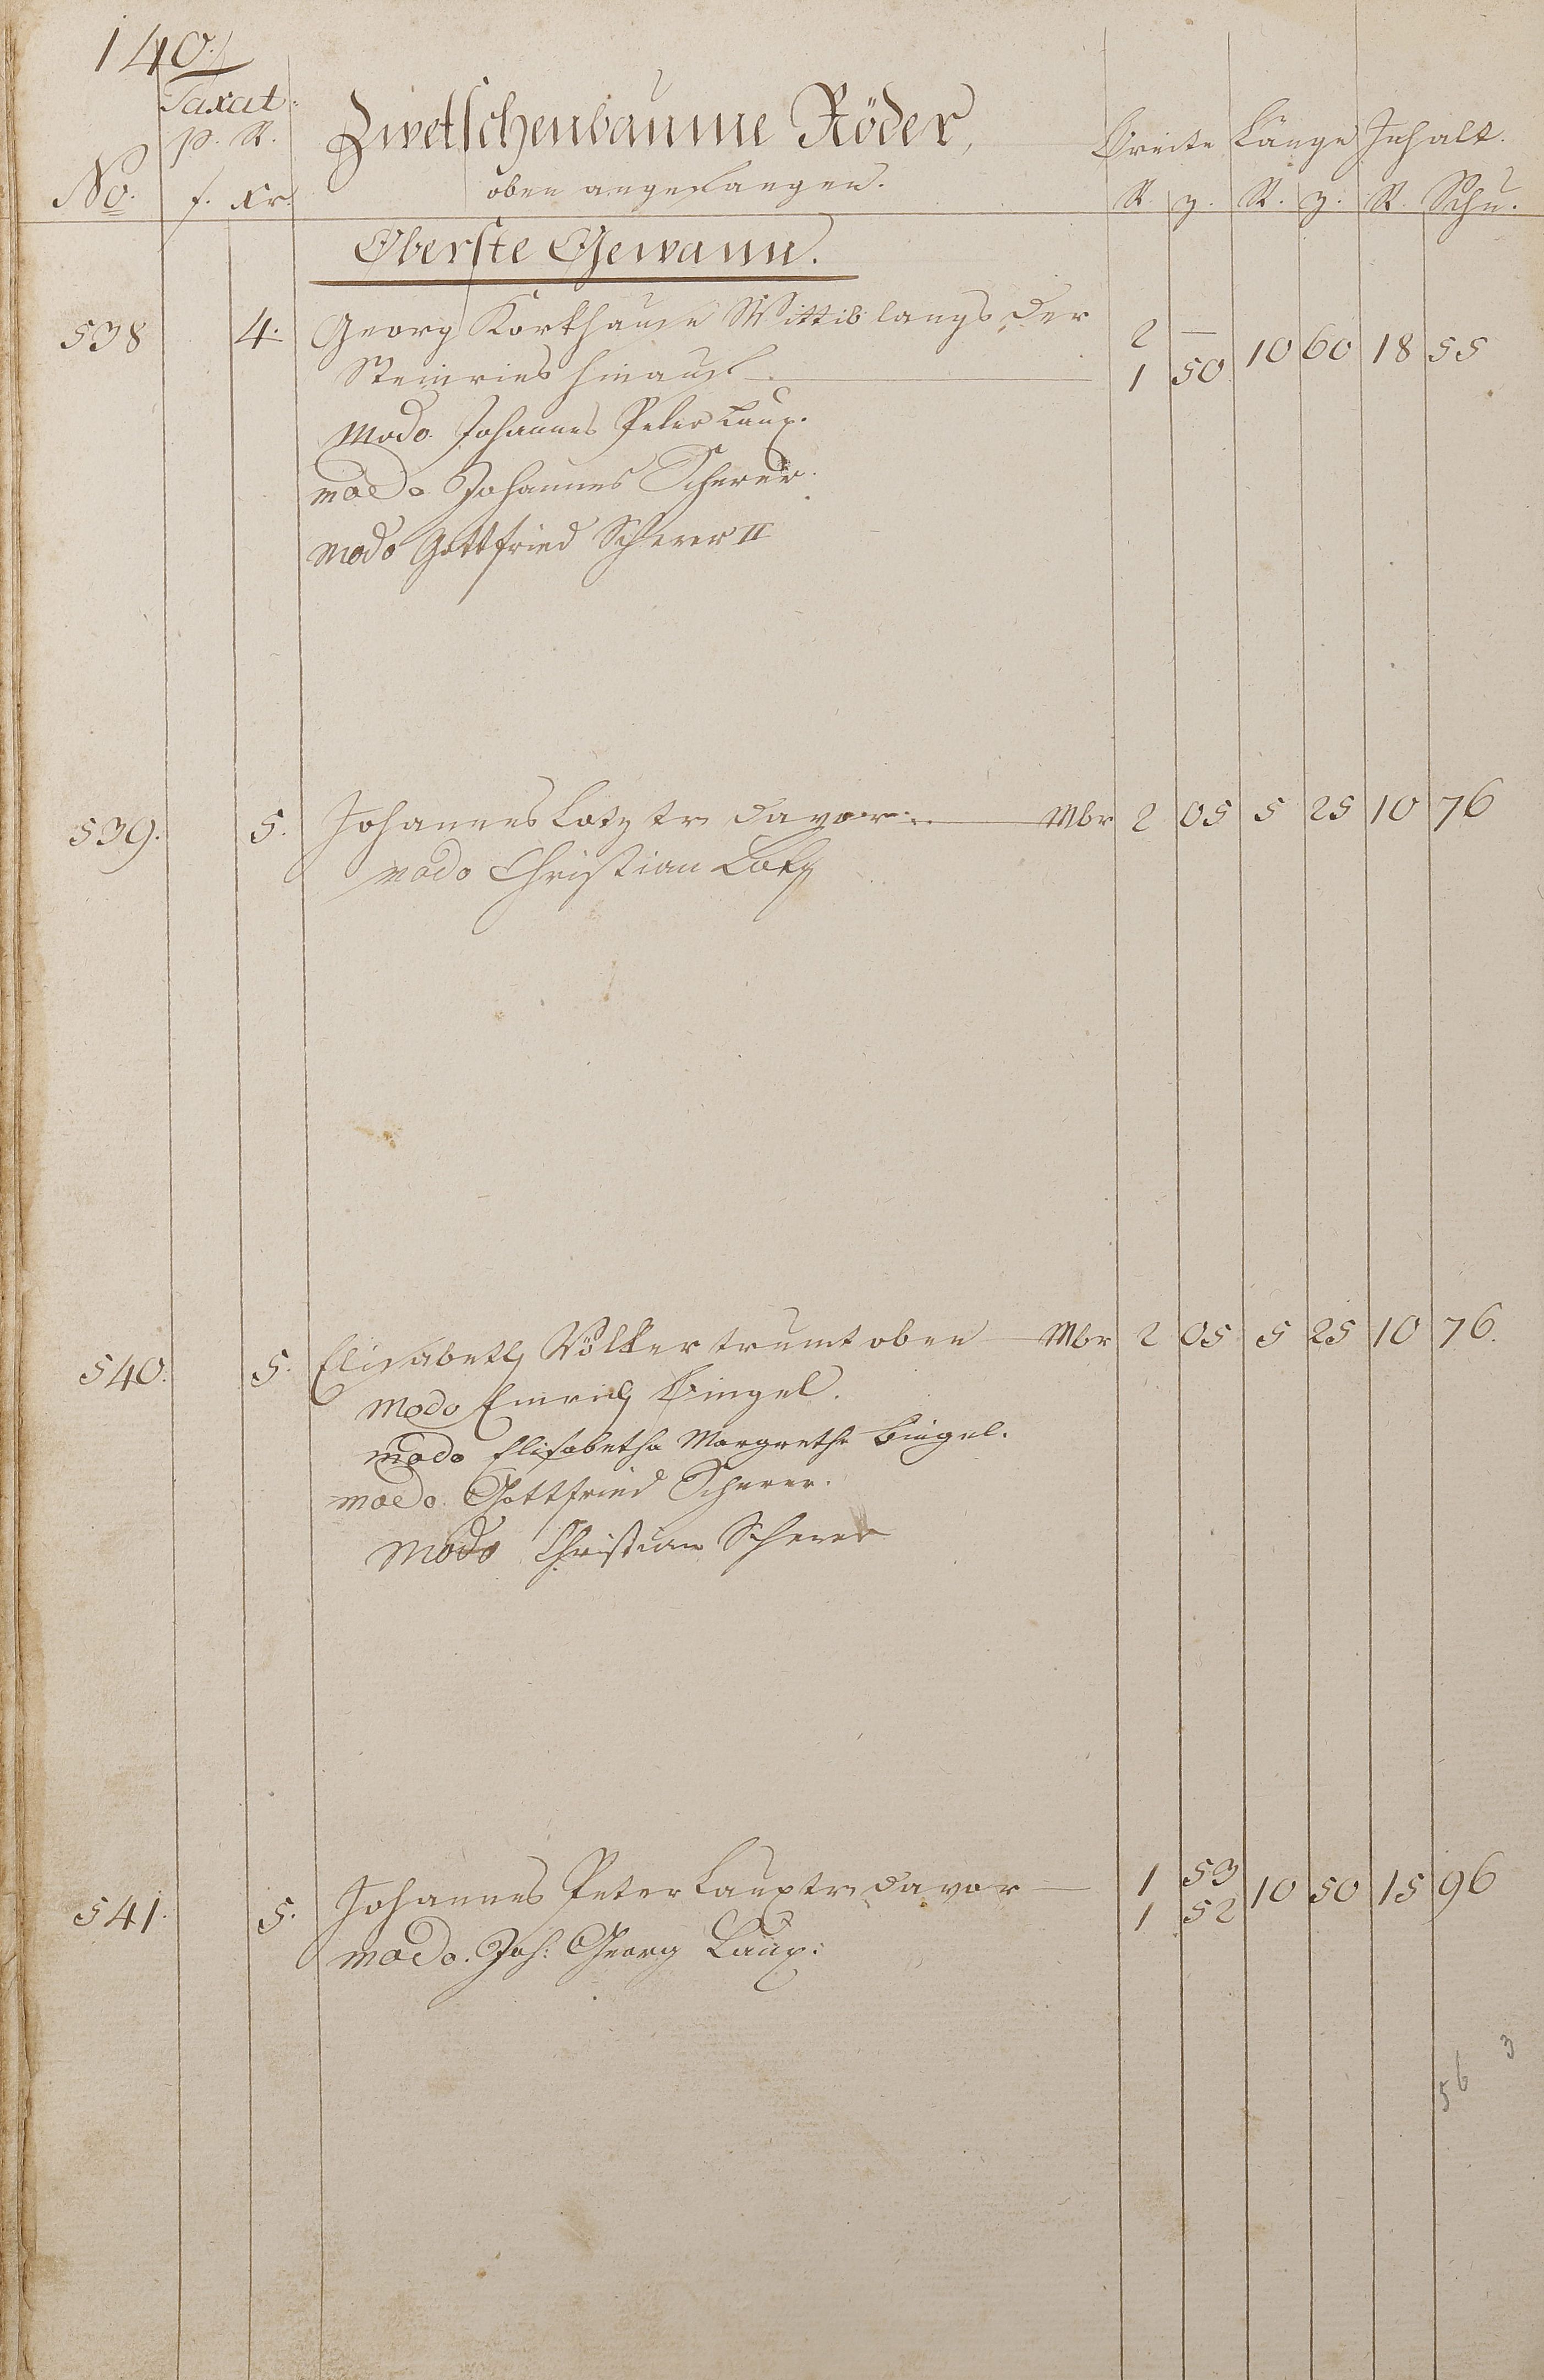 140.
Taxat:
p. R.
No. f. Xr.
Zwetschenbäume Röder,
oben angefangen.
Breite Länge Inhalt.
R. z. R. z. R. Schu.
Oberste Gewann.
538 4. Georg Korkhaus Wittib langs der 2 —
Steinries hinauf 1 50 10 60 18 55
Modo Johannes Peter Laux.
modo Johannes Scherer.
modo Gottfried Scherer II
539. 5. Johannes Lotz tr davor Mbr 2 05 5 25 10 76
modo Christian Lotz
540. 5. Elisabeth Völker trumt oben Mbr 2 05 5 25 10 76.
modo Emrich Bingel.
modo Elisabetha Margretha Bingel.
modo Gottfried Scherer.
Modo Christian Scherer
541. 5. Johannes Peter Laux tr davor 1 53 10 50 15 96
1 52
modo. Joh: Georg Laux:
3
56